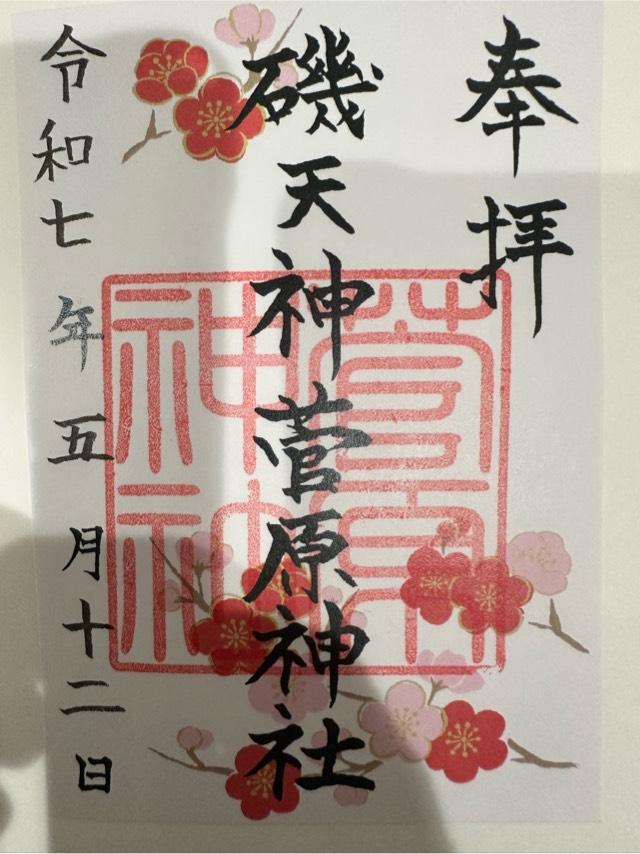 奉拝
磯天神菅原神社
令和七年五月十二日
菅原
神社